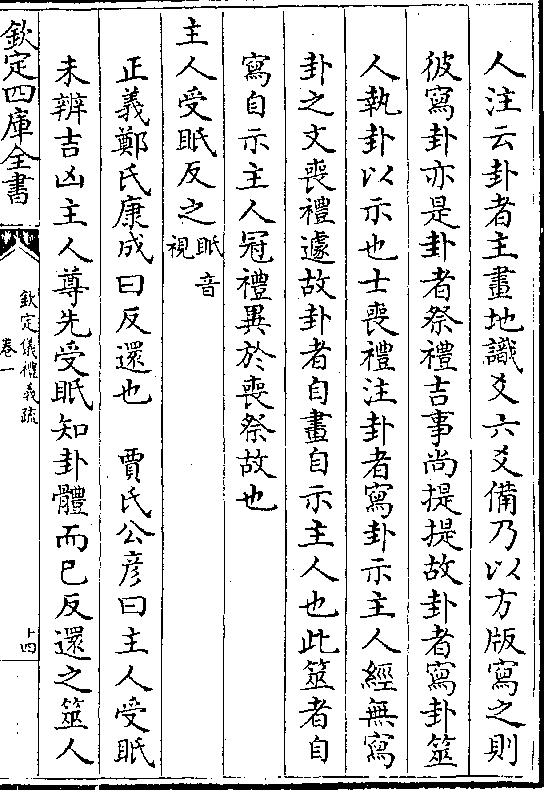 人注云卦者主畫地識爻六爻備乃以方版寫之則
彼寫卦亦是卦者祭禮吉事尚提提故卦者寫卦筮
人執卦以示也士喪禮注卦者寫卦示主人經無寫
卦之文喪禮遽故卦者自畫自示主人也此筮者自
寫自示主人冠禮異於喪祭故也
主人受眂反之眂音視
正義鄭氏康成曰反還也　賈氏公彦曰主人受眂
未辨吉凶主人尊先受眂知卦體而已反還之筮人
欽定四庫全書
欽定儀禮義疏
卷一
十四